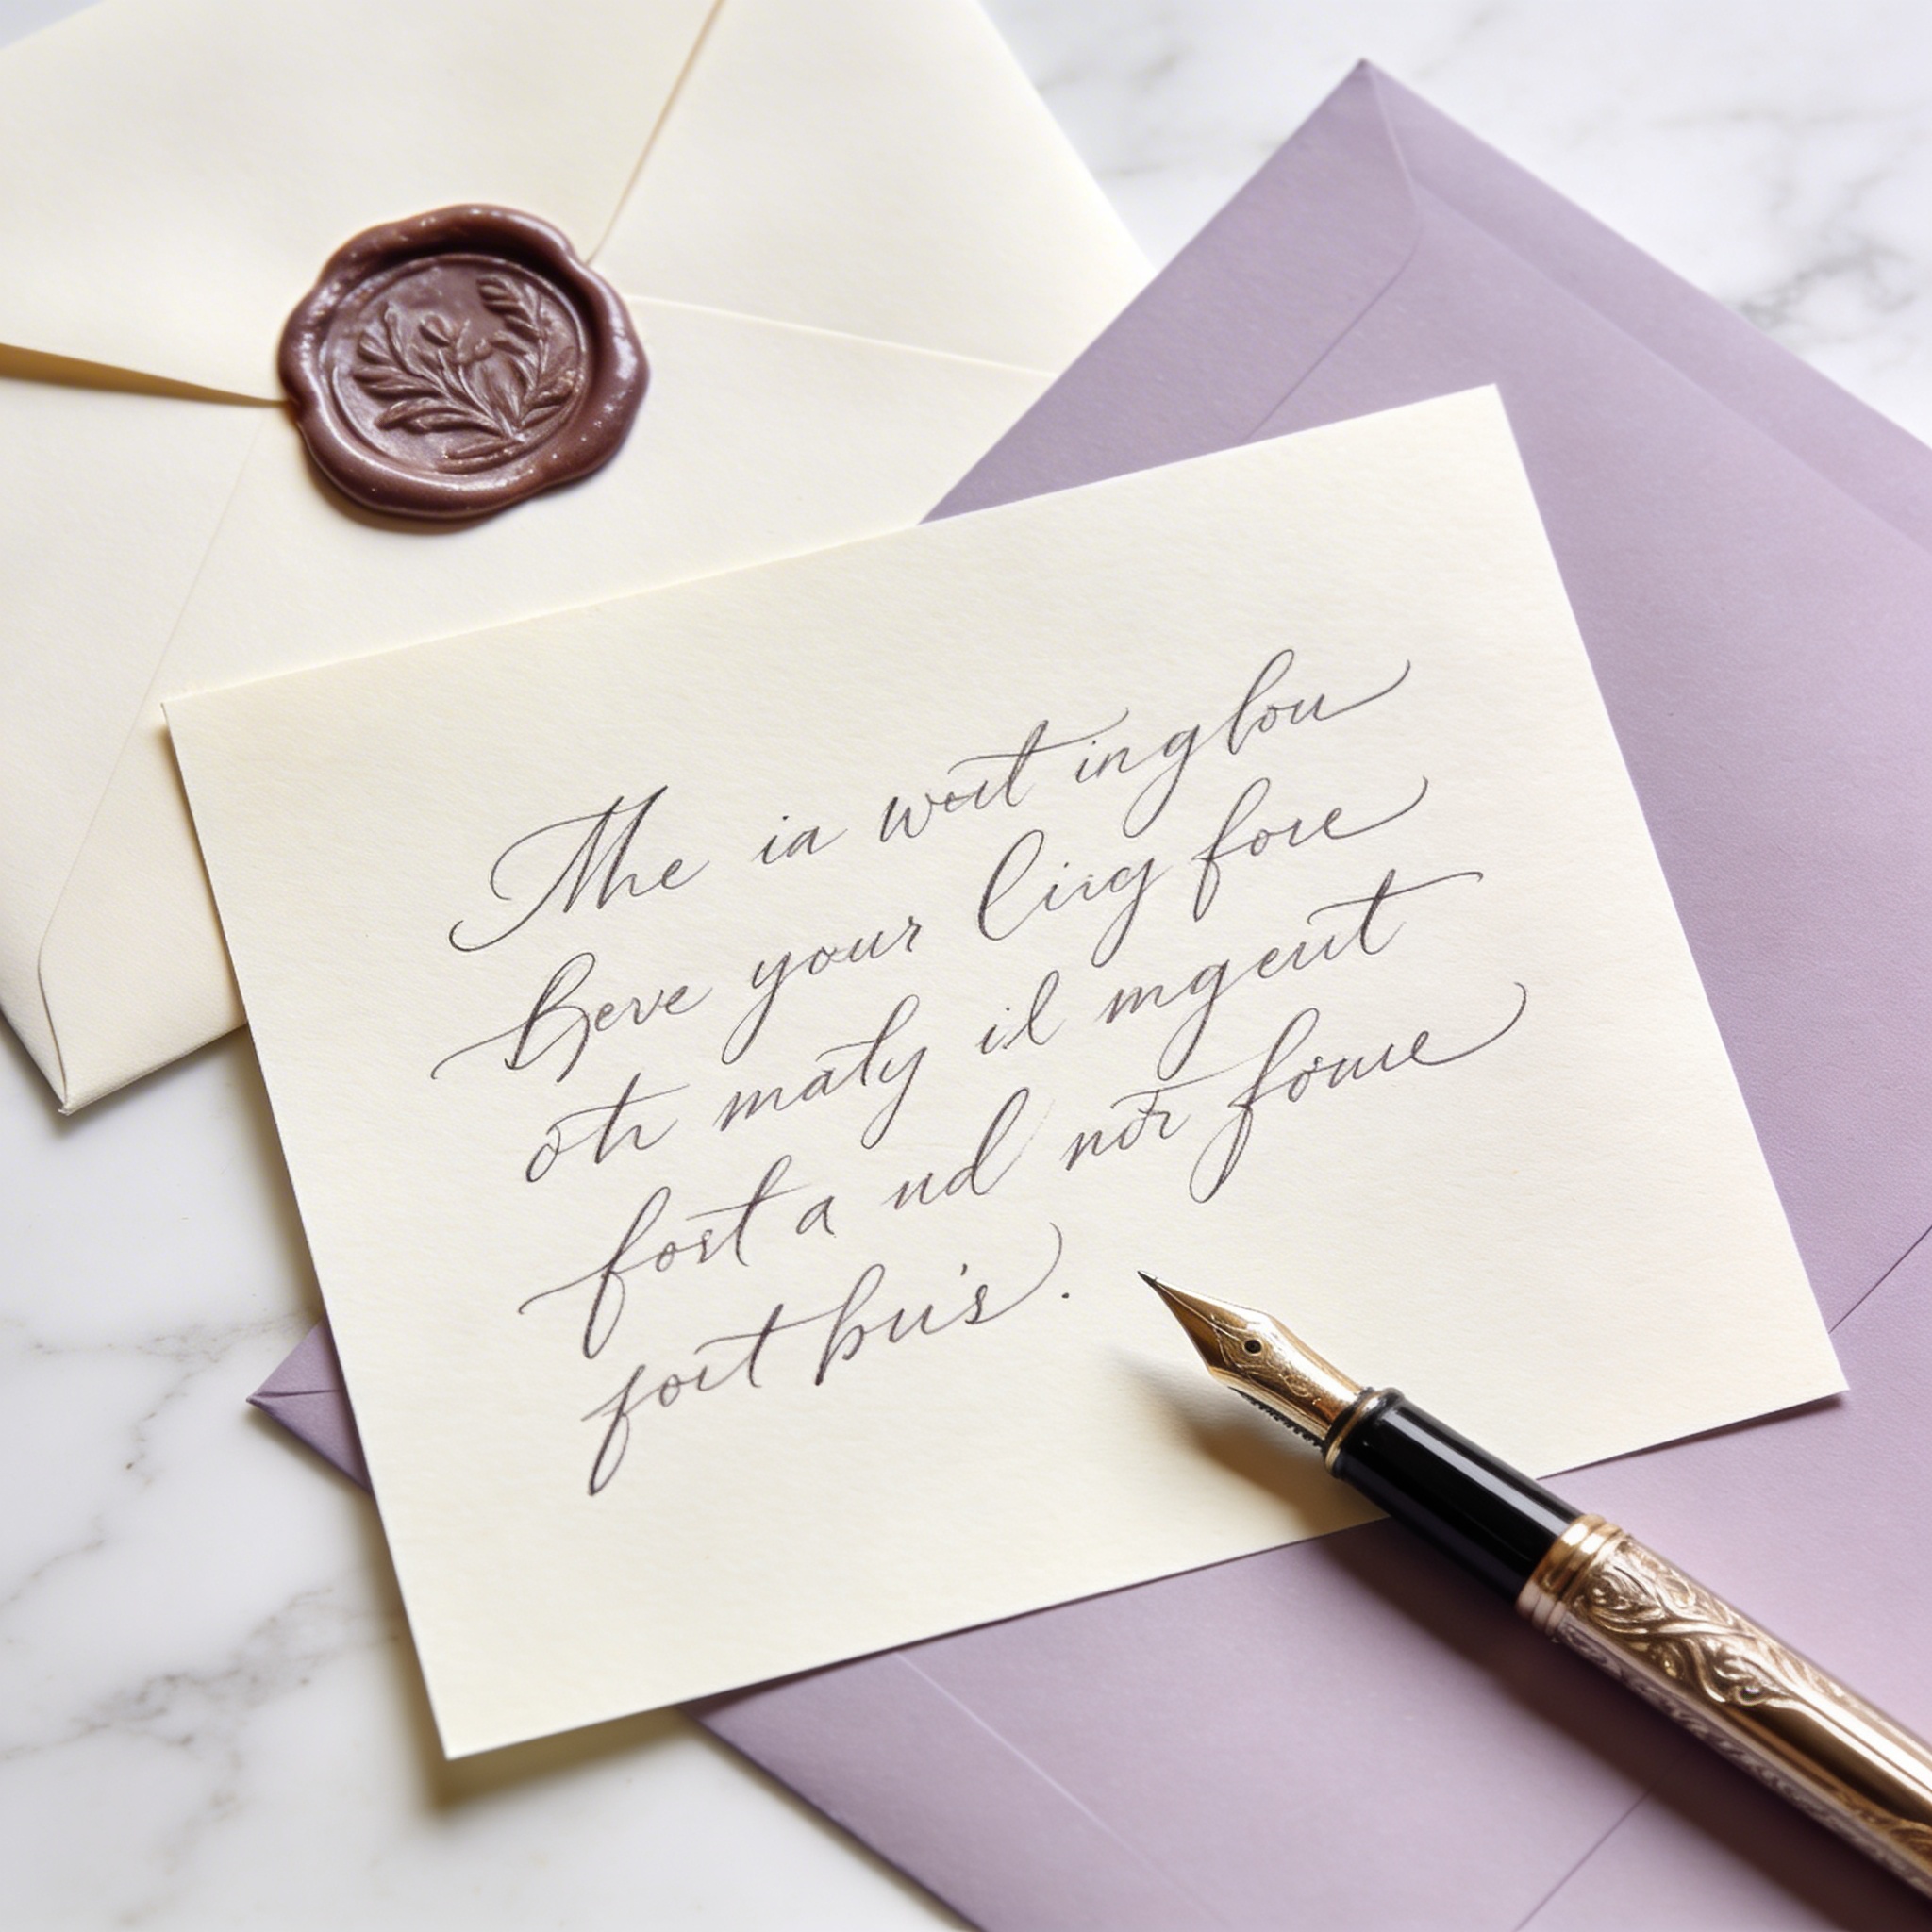 The ia wert inglou
Beve your Cirg fore
oth matly il mgent
fort a nd nor foure
foit bui's.